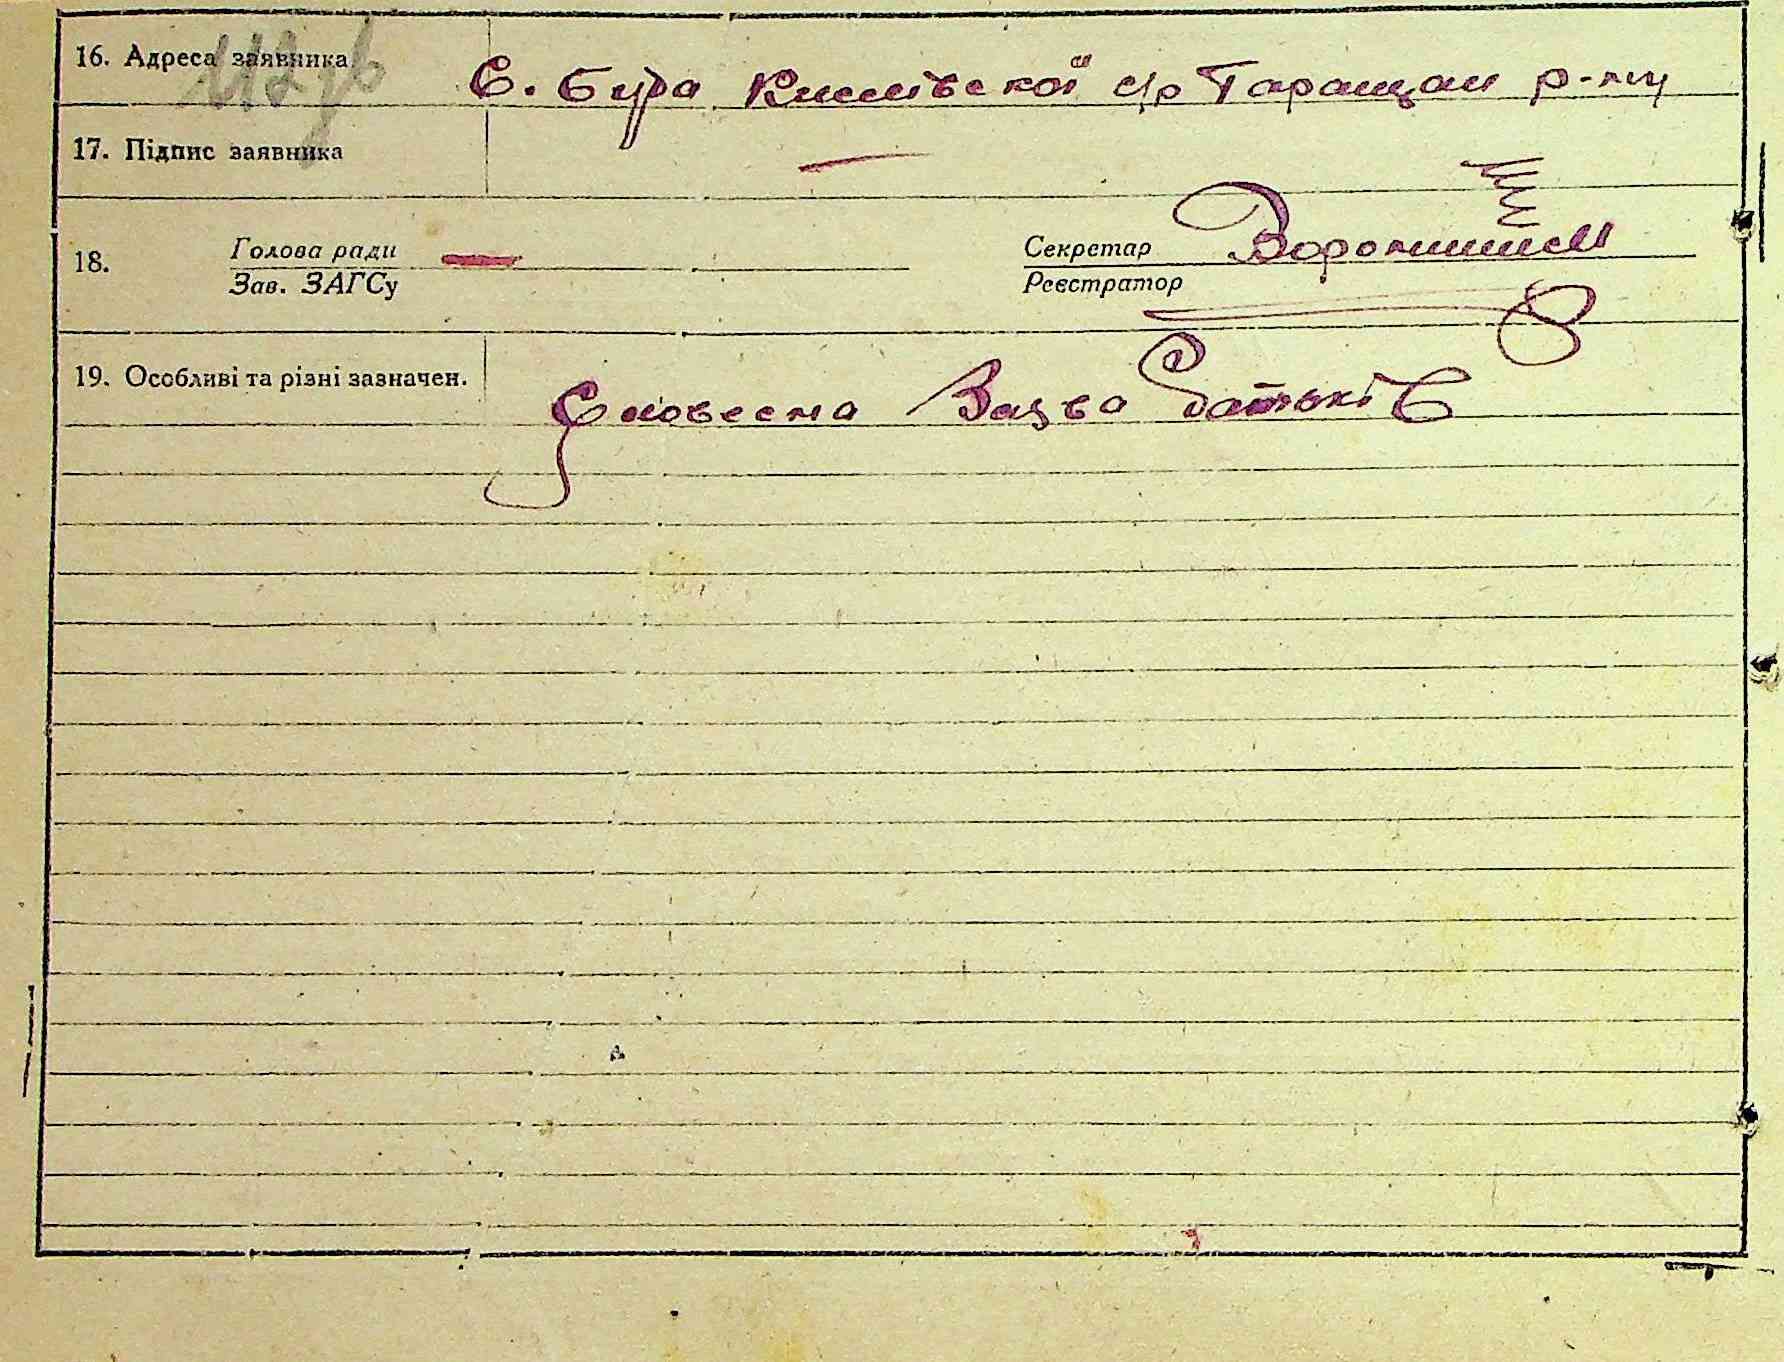 16. Адреса заявника С. Бура Кислівської с/р Таращан р-ну
17. Підпис заявника —
18. Голова ради — Секретар
Зав. ЗАГСу Реєстратор
19. Особливі та різні зазначен. Словесна Заява батьків